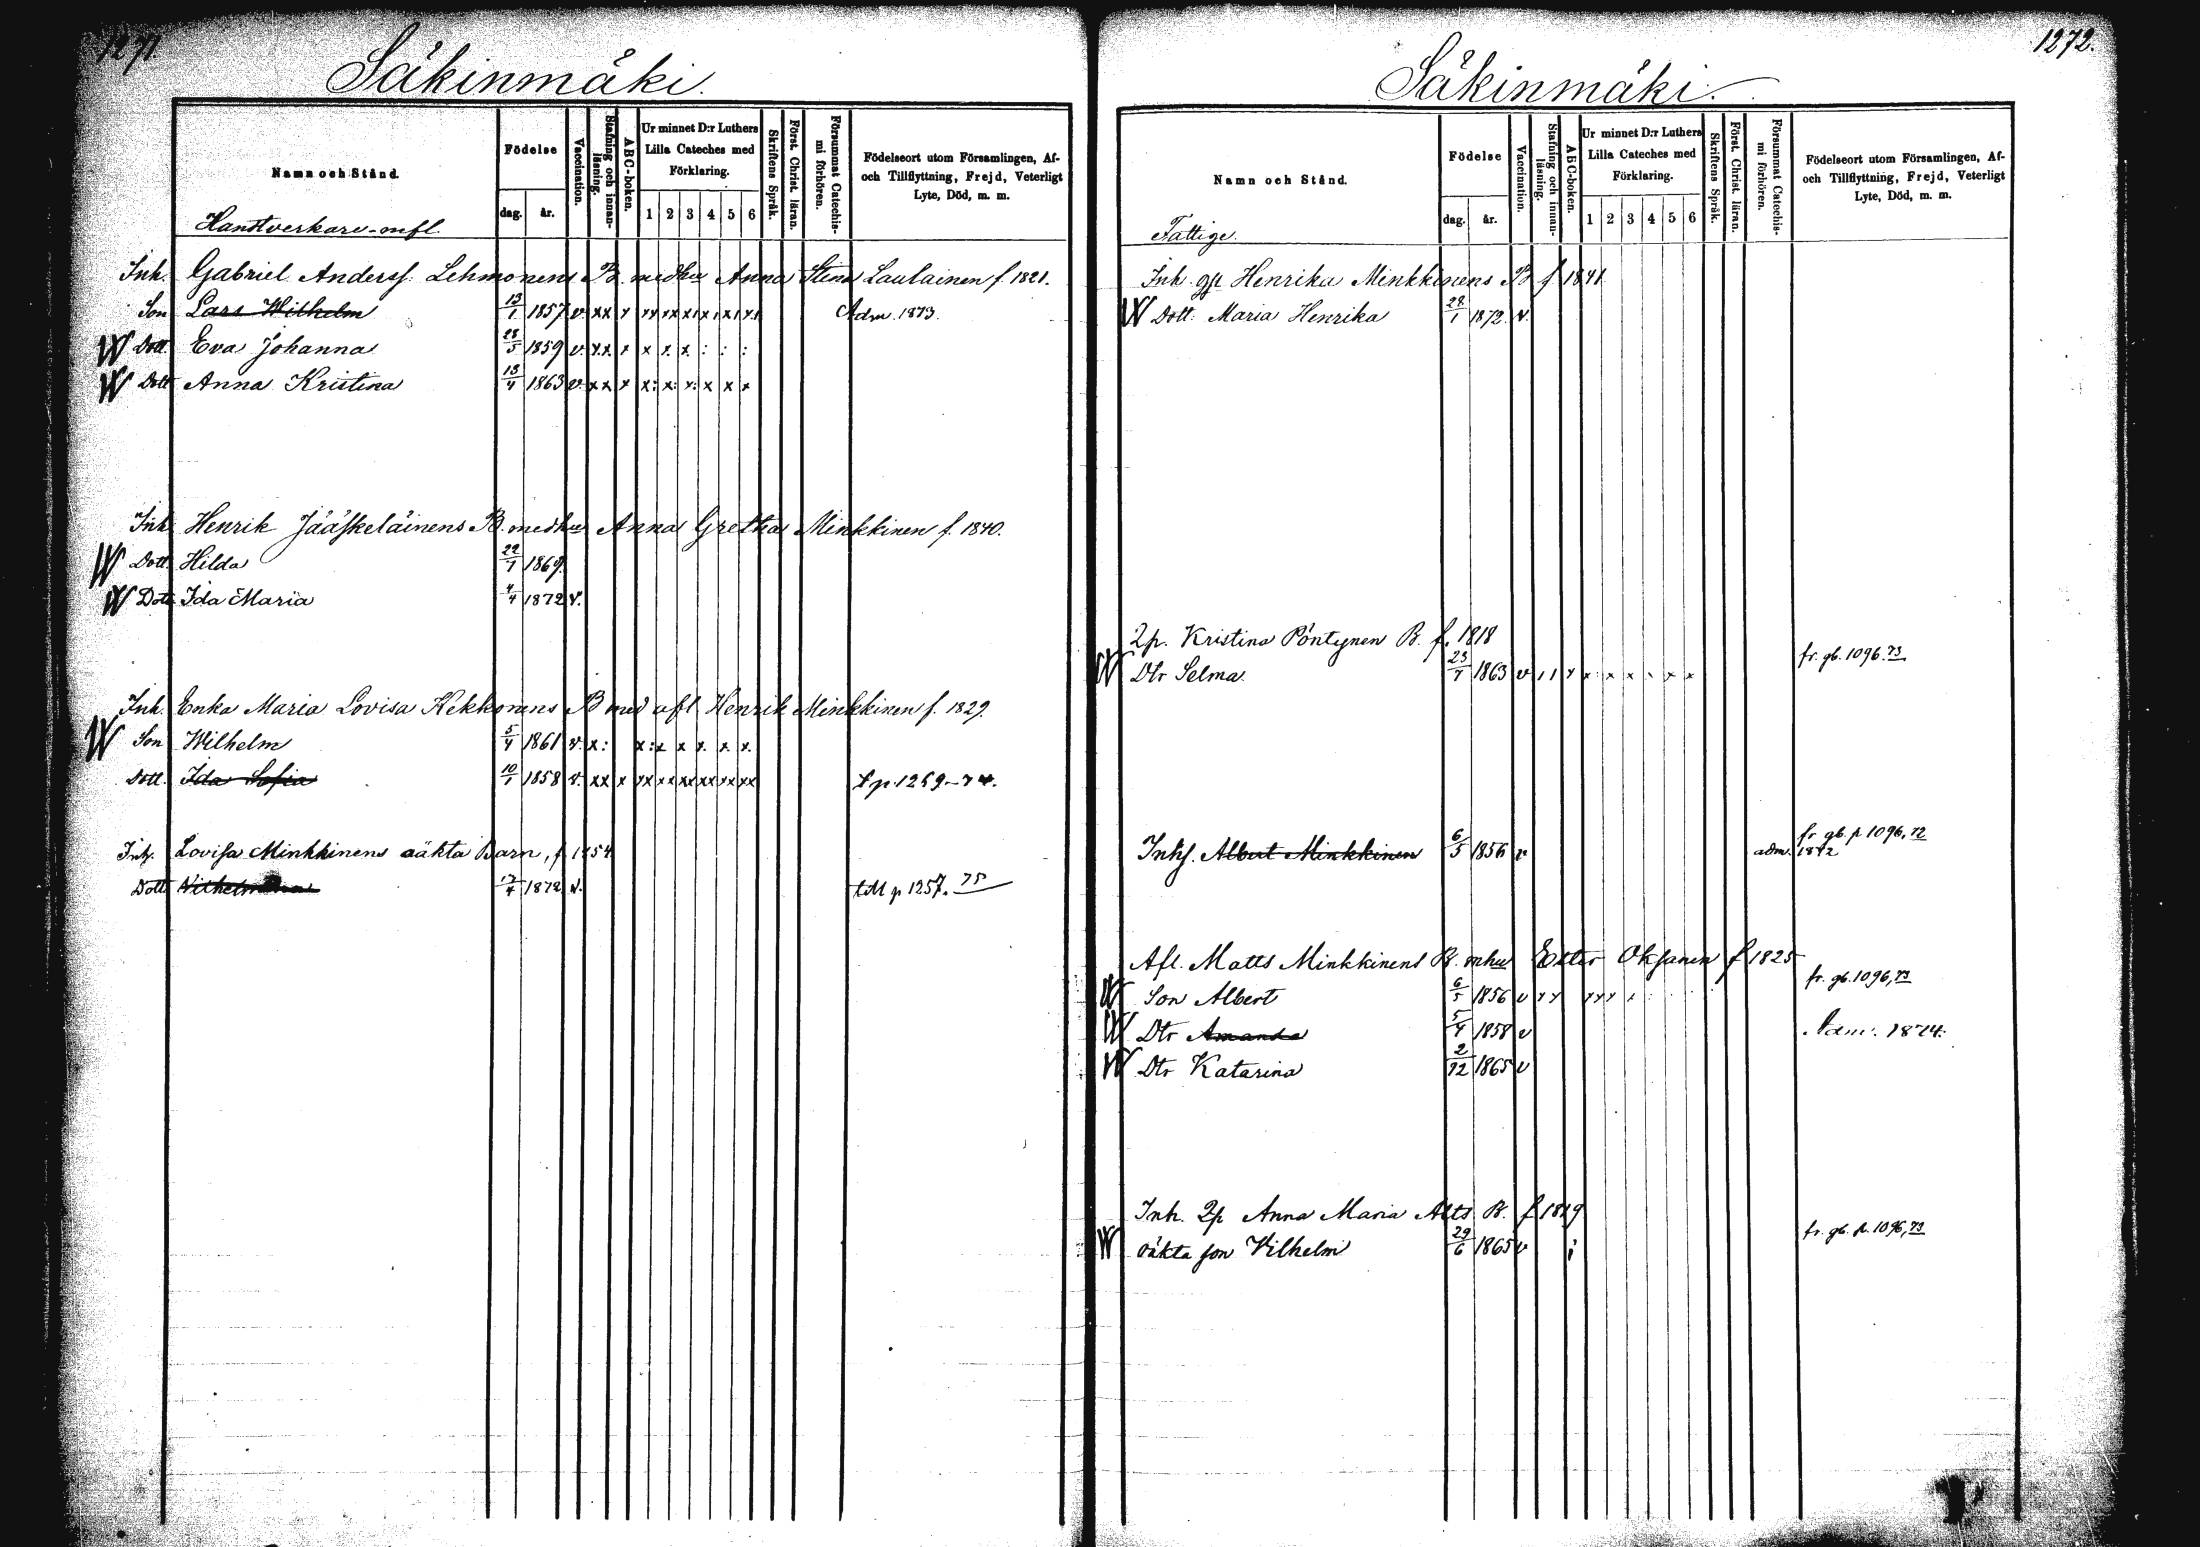 1271.
Säkinmäki.
Namn och Stånd.
Födelse
dag. år.
Vaccination.
Stafning och innanläsning.
ABC-boken.
Ur minnet D:r Luthers Lilla Cateches med Förklaring.
1 2 3 4 5 6
Skriftens Språk.
Först. Christ. läran.
Försummat Catechismi förhören.
Födelseort utom Församlingen, Af- och Tillflyttning, Frejd, Veterligt Lyte, Död, m. m.
Handtverkare-mfl.
Inh. Gabriel Anderss. Lehmonens B. med hu Anna Stina Laulainen f. 1821.
Son Lars Wilhelm 13/1 1857 v. xx x xx xx x x x x Adm. 1873.
W Dott. Eva Johanna 28/5 1859 v. x.x. x x x. x. : : :
W Dott. Anna Kristina 13/4 1863 v. x x x x: x: x: x x x
Inh. Henrik Jääskeläinens B. med hu Anna Gretha Minkkinen f. 1840.
W Dott. Hilda 22/7 1869.
W Dott. Ida Maria 4/4 1872 v.
Inh. Enka Maria Lovisa Kekkonens B med afl Henrik Minkkinen f. 1829.
W Son Wilhelm 5/4 1861 v. x: x: x x x. x. x.
Dott. Ida Sofia 10/1 1858 v. xx x xx xx xx xx xx xx t p 1269-74.
Inh. Lovisa Minkkinens oäkta Barn, f. 1854
Dott. Vilhelmina 17/4 1872 v. till p 1257. 75
1272.
Säkinmäki.
Namn och Stånd.
Födelse
dag. år.
Vaccination.
Stafning och innanläsning.
ABC-boken.
Ur minnet D:r Luthers Lilla Cateches med Förklaring.
1 2 3 4 5 6
Skriftens Språk.
Först. Christ. läran.
Försummat Catechismi förhören.
Födelseort utom Församlingen, Af- och Tillflyttning, Frejd, Veterligt Lyte, Död, m. m.
Fattige.
Inh. Henrika Minkkinens B f 1841
W Dott. Maria Henrika 28/1 1872. v.
2p. Kristina Pöntynen B. f. 1818
W Dtr Selma. 23/7 1863 v x x x x x x fr. gb. 1096. 73
Inhs. Albert Minkkinen 6/5 1856 v adm. 1872 fr. gb. p 1096, 72
Afl. Matts Minkkinens B. mhu Ester Oksanen f 1825
W Son Albert 6/5 1856 v x x x x x fr. gb. 1096, 73
W Dtr Amanda 5/4 1858 v Adm. 1874.
W Dtr Katarina 2/12 1865 v
Inh. 2p Anna Maria B. f 1829
W oäkta son Vilhelm 29/6 1865 v fr. gb. p. 1096, 73